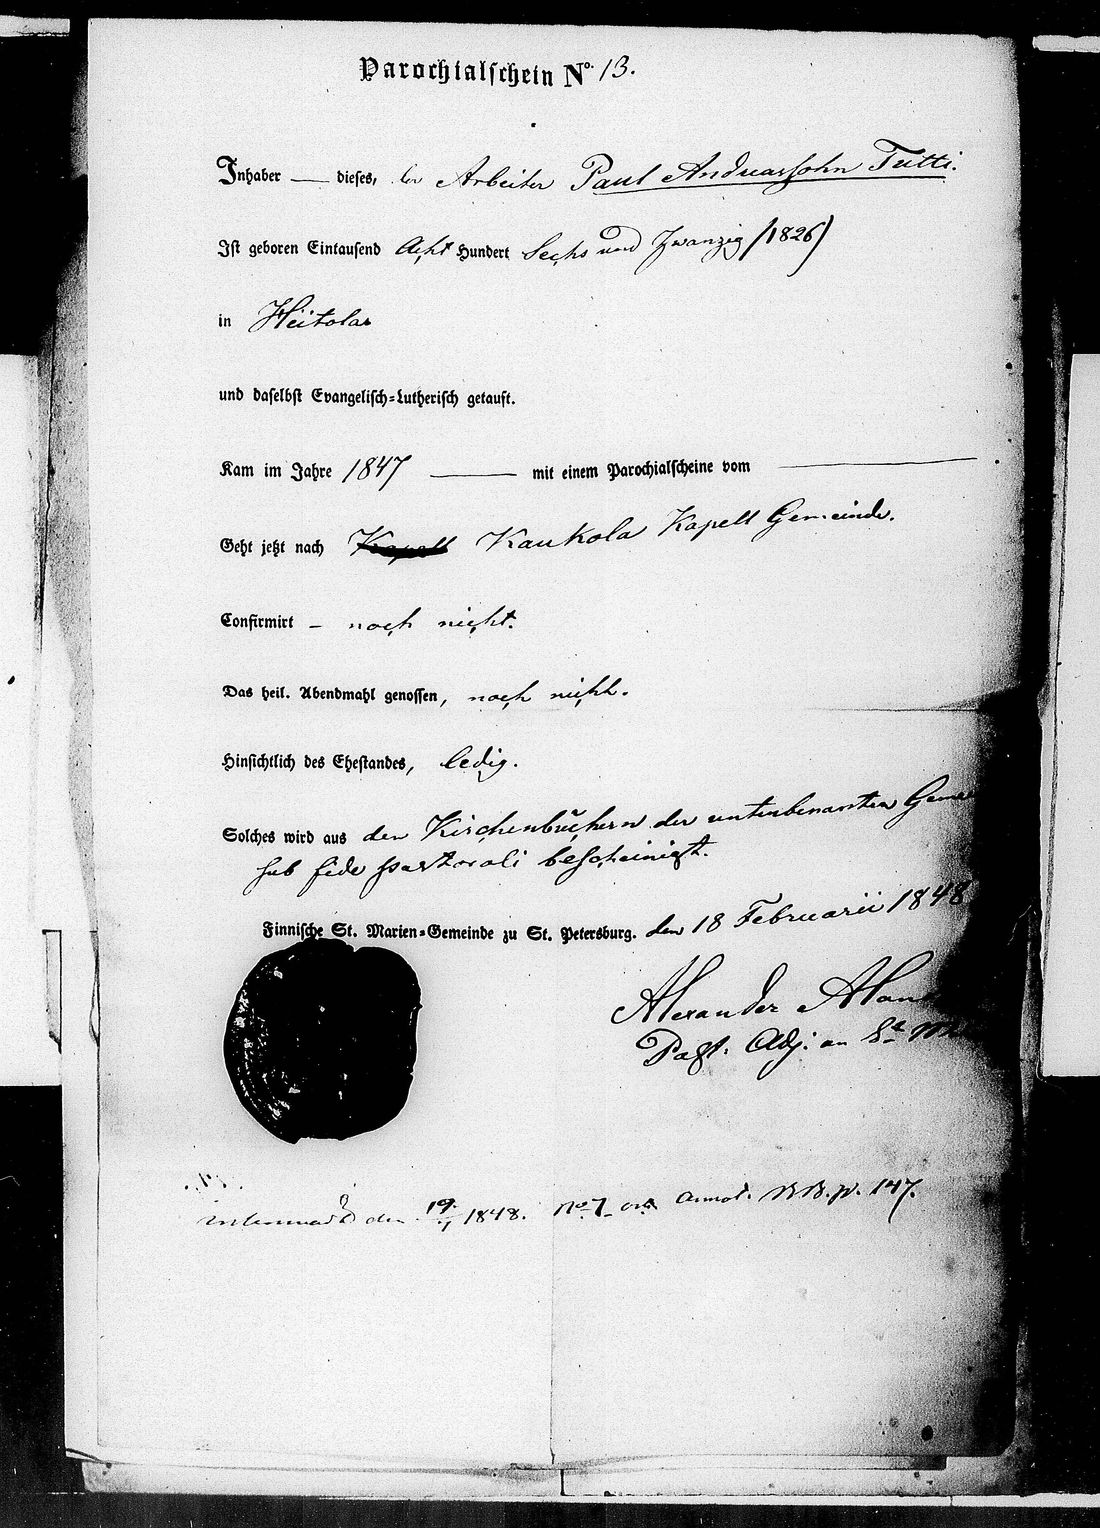 Parochialschein No. 13.
Inhaber — dieses, der Arbeiter Paul Andreassohn Tutti.
Ist geboren Eintausend Acht Hundert Sechs und Zwanzig /1826/
in Hiitola
und daselbst Evangelisch-Lutherisch getauft.
Kam im Jahre 1847 — mit einem Parochialscheine vom —
Geht jetzt nach Kaukola Kapell Gemeinde.
Confirmirt – noch nicht.
Das heil. Abendmahl genossen, noch nicht.
Hinsichtlich des Ehestandes, ledig.
Solches wird aus den Kirchenbüchern der untenbenannten Geme
sub fide pastorali bescheinigt.
Finnische St. Marien-Gemeinde zu St. Petersburg. den 18 Februarii 1848
Alexander
Past. Adj. an St
den 1848. No 7 annot. p. 147.